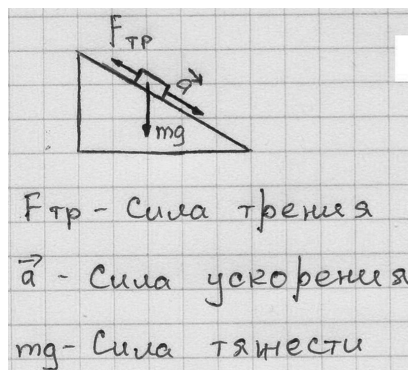 Fтр
a
mg
Fтр - Сила трения
a - Сила ускорения
mg - Сила тяжести